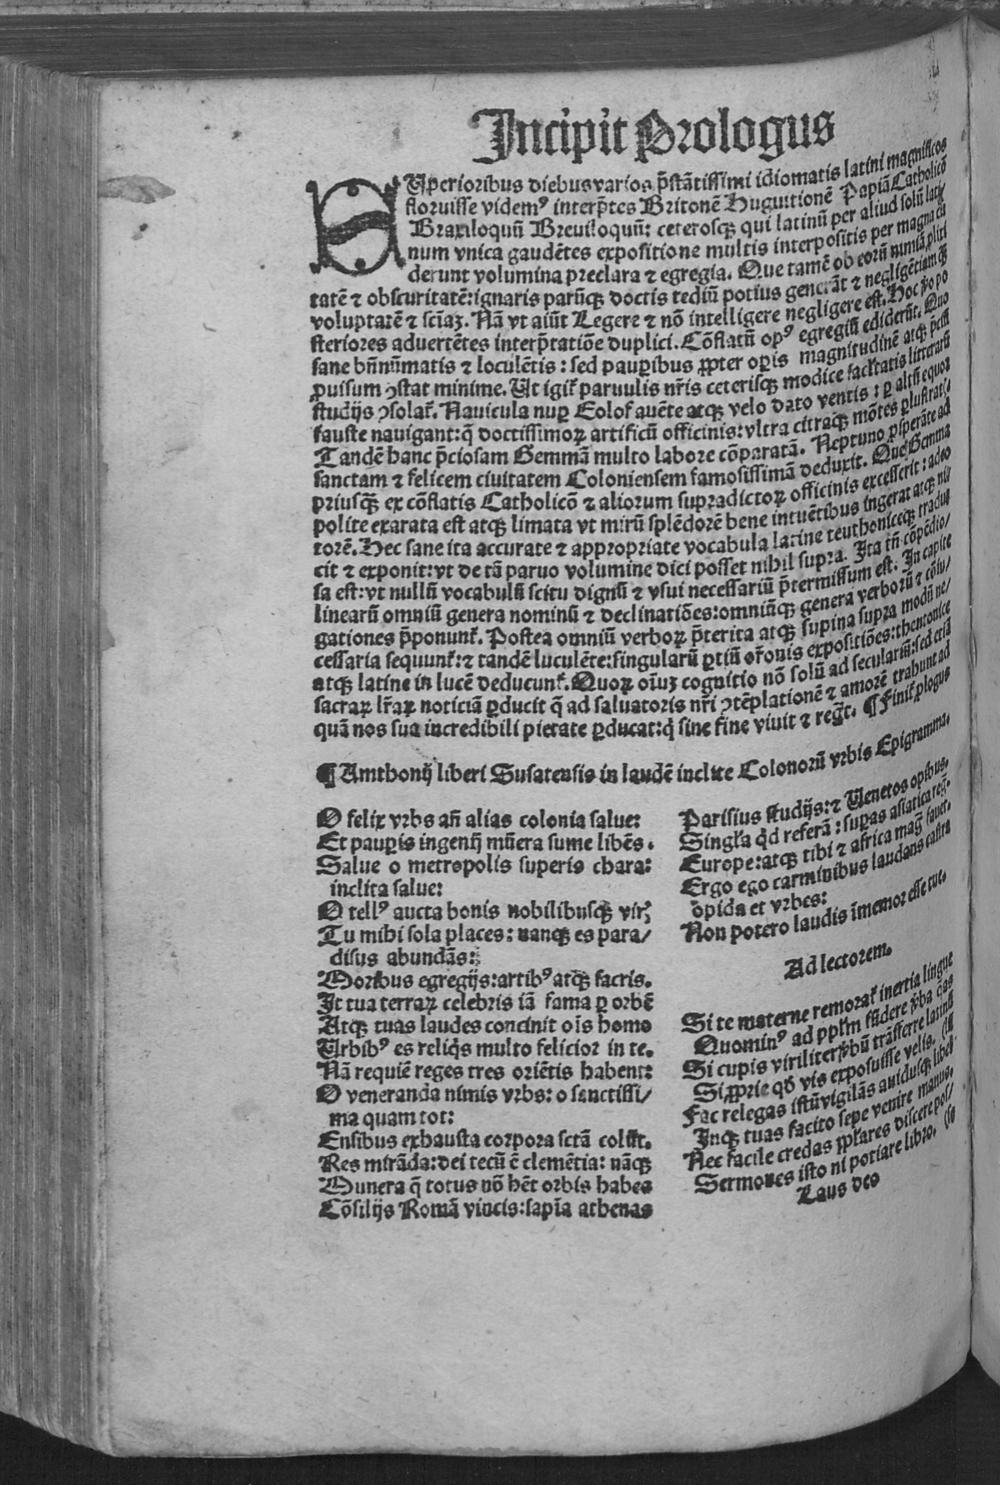 Incipit Prologus
SUperioribus diebus varios p̄stātissimi idiomatis latini magnificos
floruisse videmꝰ interp̄tes Britonē Huguitionē Papiā Catholicō
Braxiloquū Breuiloquū: ceterosqꝫ qui latinū per aliud solū lati/
num vnica gaudētes expositione multis interpositis per magna cū
derunt volumina preclara ⁊ egregia. Que tamē ob eorū nimiā pliri
tatē ⁊ obscuritatē: ignaris parūqꝫ doctis tediū potius generāt ⁊ negligētiam qꝫ
voluptatē ⁊ sciāꝫ. Nā vt aiūt Legere ⁊ nō intelligere negligere est. Hoc ꝓo po
steriores aduertētes interp̄tatiōe duplici. Cōflatū opꝰ egregiū ediderūt. Quo
sane bn̄nūmatis ⁊ loculētis: sed pauꝑibus ꝓpter oꝑis magnitudinē atqꝫ p̄ciū
ꝓuisum ꝯstat minime. Ut igiť paruulis nr̄is ceterisqꝫ modice facltatis litterarū
studijs ꝯsolať. Nauicula nuꝑ Eolof auēte atqꝫ velo dato ventis: ꝑ altū equor
fauste nauigant: q̄ doctissimoꝝ artificū officinis: vltra citraqꝫ mōtes ꝑlustrat/
Tandē hanc p̄ciosam Gemmā multo labore cōparatā. Neptuno ꝓsperāte ad
sanctam ⁊ felicem ciuitatem Coloniensem famosissimā deduxit. Que Gemma
priusqꝫ ex cōflatis Catholicō ⁊ aliorum supradictoꝝ officinis excesserit: adeo
polite exarata est atqꝫ limata vt mirū splēdorē bene intuētibus ingerat atqꝫ ni/
torē. Hec sane ita accurate ⁊ appropriate vocabula latine teuthoniceqꝫ tradu
cit ⁊ exponit: vt de tā paruo volumine dici posset nihil supra. Ita tn̄ cōpēdio/
sa est: vt nullū vocabulū scitu dignū ⁊ vsui necessariū p̄termissum est. In capite
linearū omniū genera nominū ⁊ declinatiōes: omniūqꝫ genera verborū ⁊ cōiu/
gationes p̄ponunť. Postea omniū verboꝝ p̄terita atqꝫ supina supra modū ne/
cessaria sequunť: ⁊ tandē luculēte: singularū ꝑtiū or̄onis expositiōes: theutonice
atqꝫ latine in lucē deducunť. Quoꝝ oīuꝫ cognitio nō solū ad seculariū: sed etiā
sacraꝝ lr̄aꝝ noticiā ꝑducit q̄ ad saluatoris nr̄i ꝯtēplationē ⁊ amorē trahunt ad
quā nos sua incredibili pietate ꝑducat: q̇ sine fine viuit ⁊ regť. ¶ Finiť ꝓlogus
¶ Amthonij liberi Susatensis in laudē inclite Colonorū vrbis Epigramma.
O felix vrbs an̄ alias colonia salue:
Et pauꝑis ingenij mūera sume libēs.
Salue o metropolis superis chara:
inclita salue:
O tellꝰ aucta bonis nobilibusqꝫ viꝝ
Tu mihi sola places: nanqꝫ es para/
disus abundās:
Moribus egregijs: artibꝰ atqꝫ sacris.
It tua terraꝝ celebris iā fama ꝑ orbē
Atqꝫ tuas laudes concinit oīs homo
Urbibꝰ es reliq̇s multo felicior in te.
Nā requiē reges tres oriētis habent:
O veneranda nimis vrbs: o sanctissi/
ma quam tot:
Ensibus exhausta corpora sctā colūt.
Res mirāda: dei tecū ē clemētia: nāqꝫ
Munera q̄ totus nō hēt orbis habes
Cōsilijs Romā vincis: sapīa athenas
Parisius studijs: ⁊ Venetos opibus.
Singl̄a q̇d referā: suꝑas asiatica reg̃.
Europe: atqꝫ tibi ⁊ africa mag̃ fauet.
Ergo ego carminibus laudans castra
opida et vrbes:
Non potero laudis īmemor esse tue.
Ad lectorem.
Si te materne remorať inertia lingue
Quominꝰ ad pp̄lm fūdere ꝟba q̄as
Si cupis viriliter ꝟbū trāsferre latinū
Si ꝓprie qꝺ vis exposuisse velis.
Fac relegas istū vigilās auidusqꝫ libel (lū
Inqꝫ tuas facito sepe venire manus.
Nec facile credas ꝓpl̄ares discere pos/
Sermones isto ni potiare libro. (se
Laus deo